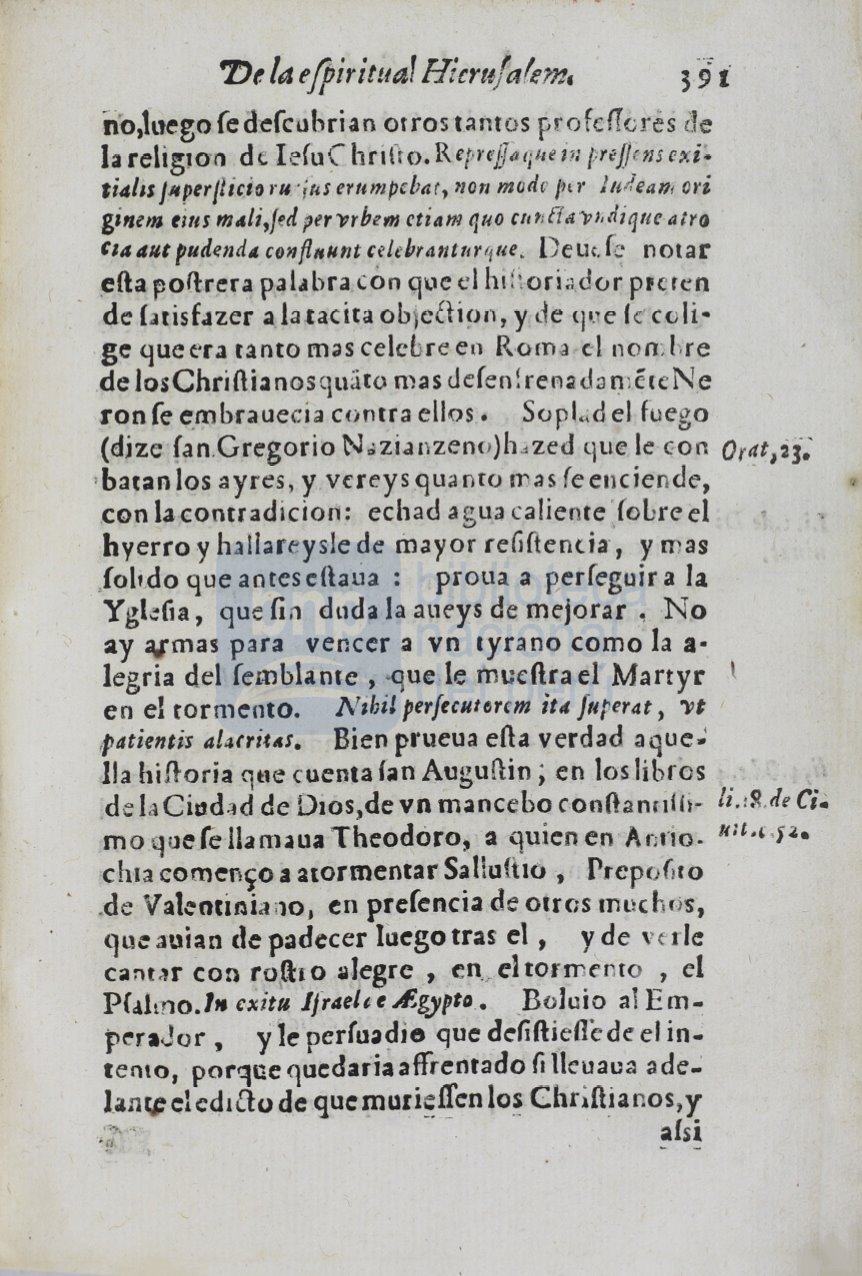 De la eſpiritual Hieruſalem. 391
no, luego ſe deſcubrian otros tantos profeſſores de
la religion de Ieſu Chriſto. Repreſſaque in preſſens exi-
tialis ſuperſticio rurſus erumpebat, non modo per Iudeam ori
ginem eius mali, ſed per vrbem etiam quo cuncta vndique atro
cia aut pudenda confluunt celebranturque. Deueſe notar
eſta poſtrera palabra con que el hiſtoriador preten
de ſatisfazer a la tacita objection, y de que ſe coli-
ge que era tanto mas celebre en Roma el nombre
de los Chriſtianos quãto mas deſenfrenadamẽte Ne
ron ſe embrauecia contra ellos. Soplad el fuego
(dize ſan Gregorio Nazianzeno) hazed que le con
batan los ayres, y vereys quanto mas ſe enciende,
con la contradicion: echad agua caliente ſobre el
hyerro y hallareysle de mayor reſiſtencia, y mas
ſolido que antes eſtaua: proua a perſeguir a la
Ygleſia, que ſin duda la aueys de mejorar. No
ay armas para vencer a vn tyrano como la a-
legria del ſemblante, que le mueſtra el Martyr
en el tormento. Nihil perſecutorem ita ſuperat, vt
patientis alacritas. Bien prueua eſta verdad aque-
lla hiſtoria que cuenta ſan Auguſtin; en los libros
de la Ciudad de Dios, de vn mancebo conſtantiſſi-
mo que ſe llamaua Theodoro, a quien en Antio-
chia començo a atormentar Salluſtio, Prepoſito
de Valentiniano, en preſencia de otros muchos,
que auian de padecer luego tras el, y de verle
cantar con roſtro alegre, en el tormento, el
Pſalmo. In exitu Iſrael e Ægypto. Boluio al Em-
perador, y le perſuadio que deſiſtieſſe de el in-
tento, porque quedaria affrentado ſi lleuaua ade-
lante el edicto de que murieſſen los Chriſtianos, y
aſsi
Orat, 23.
li. 18. de Ci-
uit. c. 52.